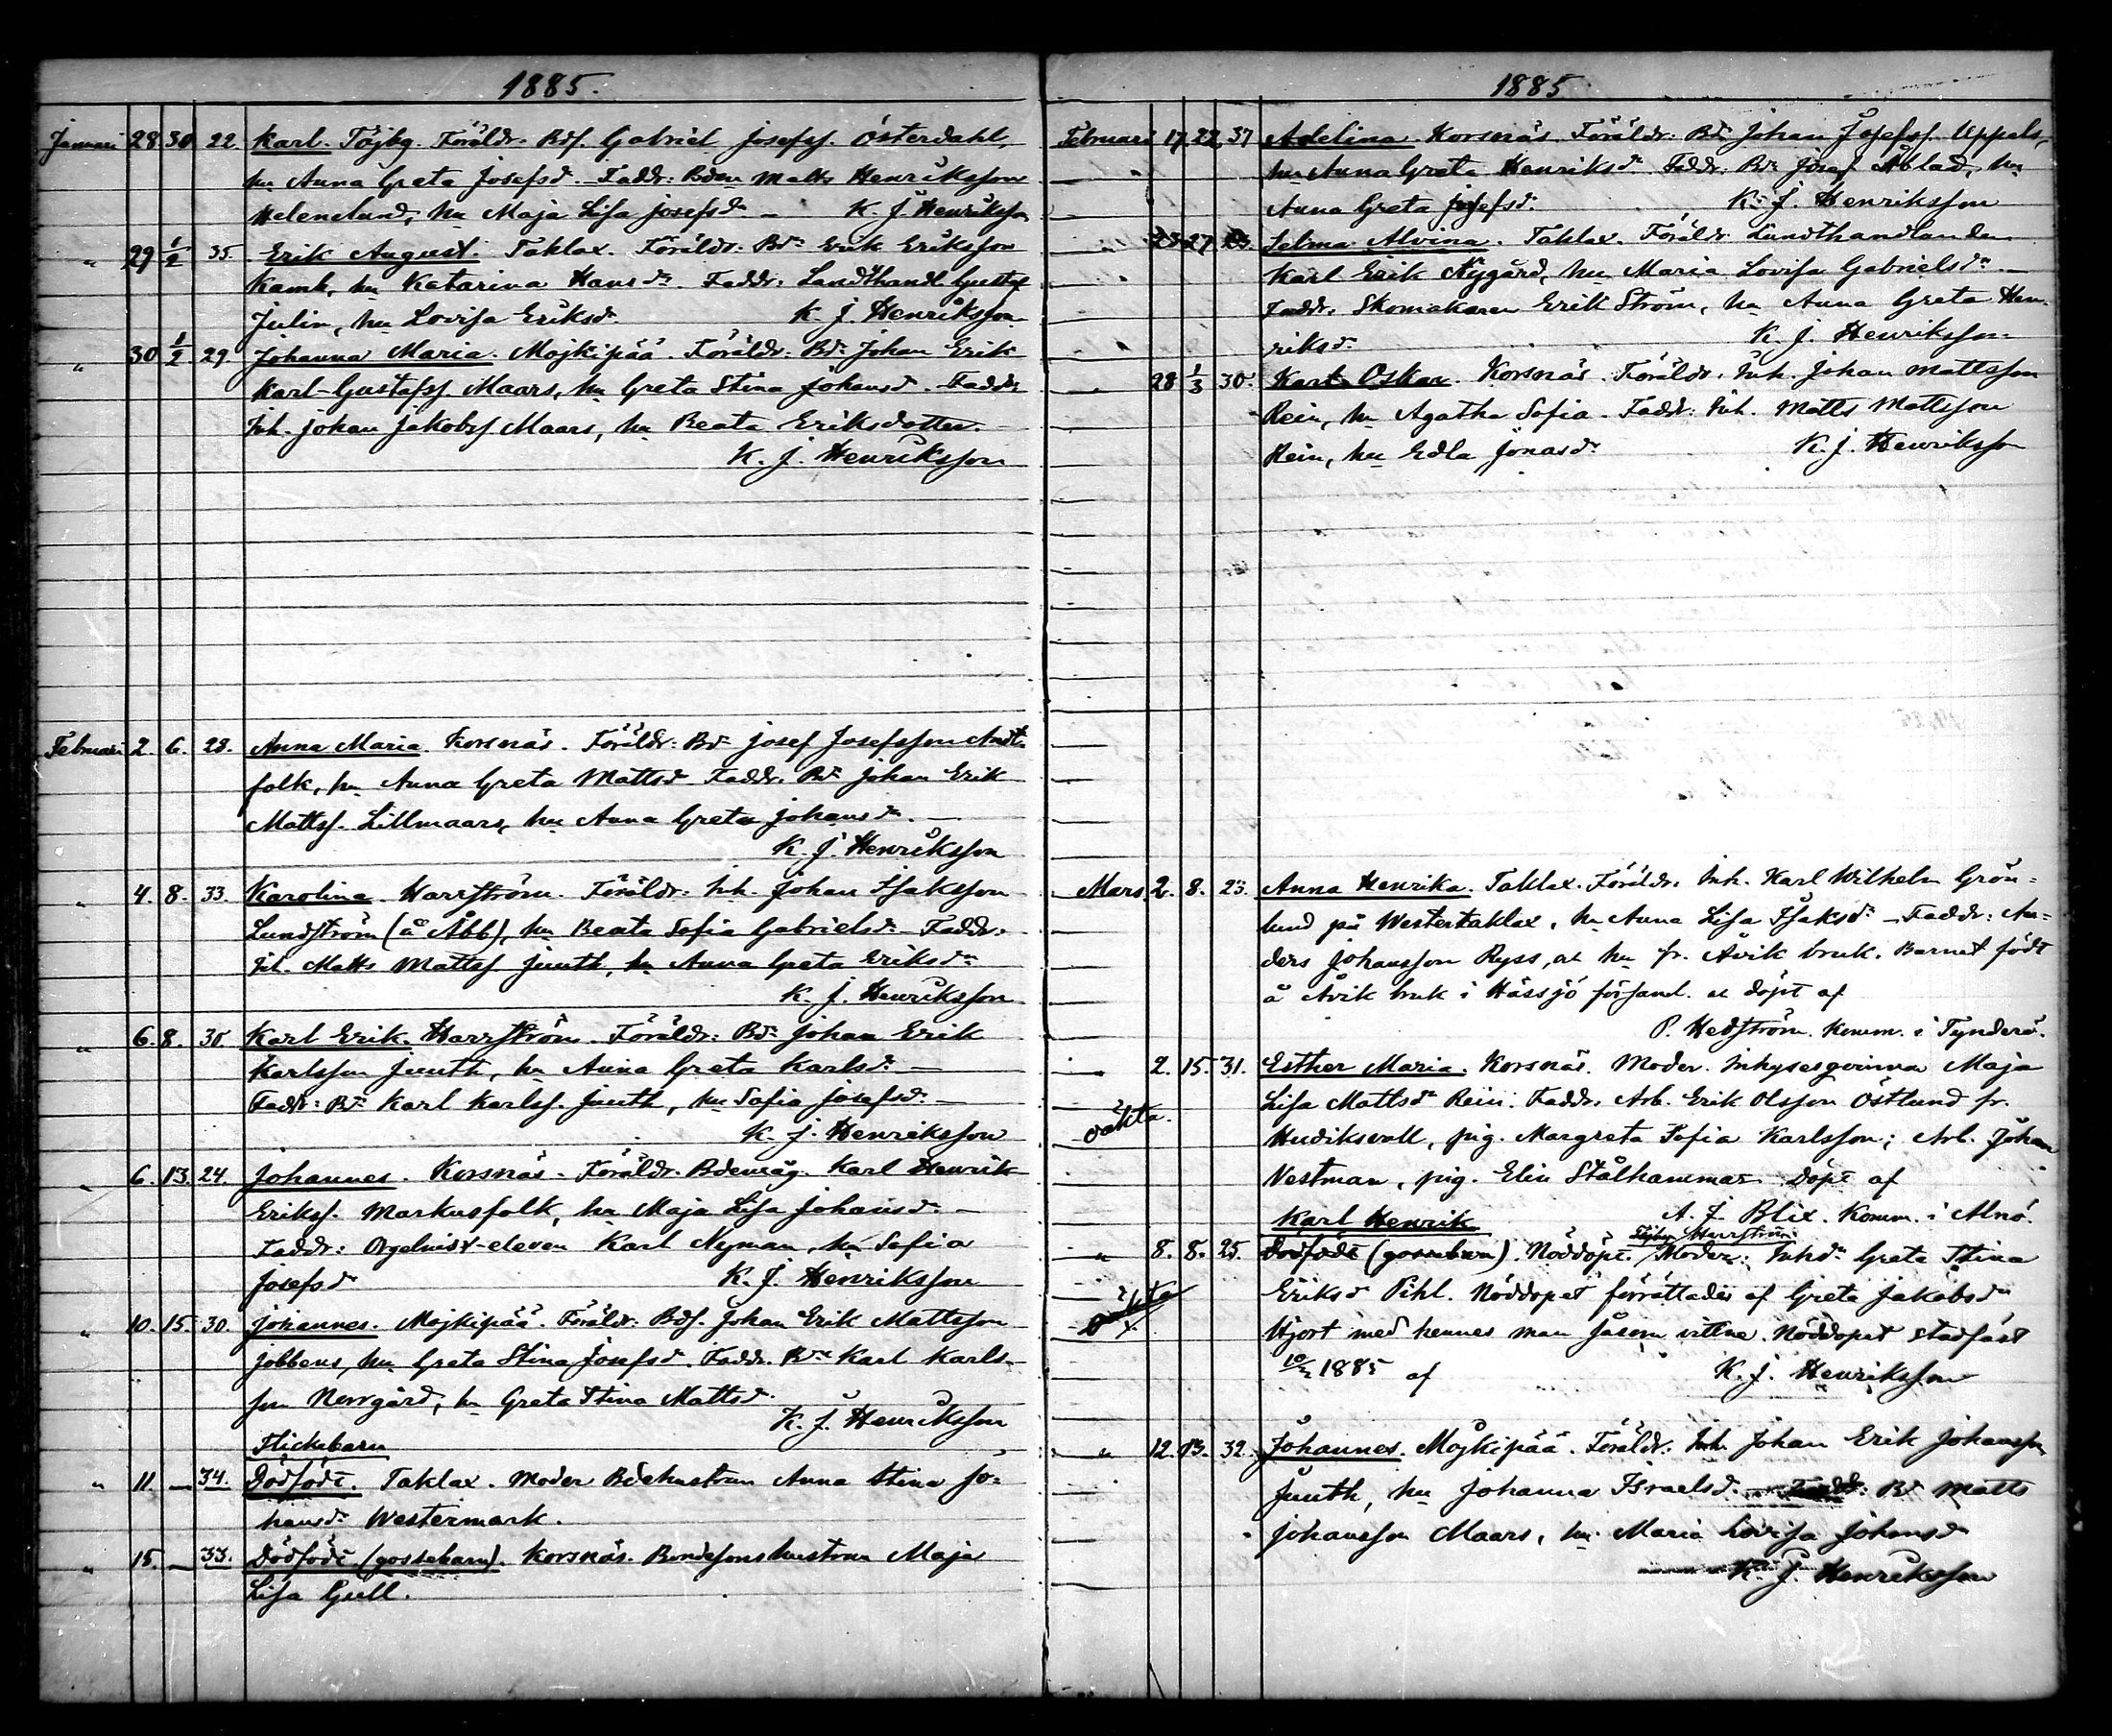 1885.
Januari 28 30 22 Karl. Töjbg. Föräldr. Bds. Gabriel Josefss. Österdahl,
hu Anna Greta Josefsd. Faddr: Bden Matts Henriksson
Helenelund, hu Maja Lisa Josefsdr K. J. Henriksson
" 29 1/2 35. Erik August. Taklax. Föräldr: Bdn Erik Eriksson
Kamb, hu Katarina Hansdr. Faddr: Landthandl Gustaf
Julin, hu Lovisa Eriksdr. K. J. Henriksson
" 30 1/2 29 Johanna Maria. Mojkipää. Föräldr: Bdn Johan Erik
Karl-Gustafss. Maars, hu Greta Stina Johansd. Faddr
Inh. Johan Jakobss Maars, hu Beata Eriksdotter.
K. J. Henriksson
Februari 2. 6. 28. Anna Maria. Korsnäs. Föräldr: Bdn Josef Josefsson
folk, hu Anna Greta Mattsdr Faddr. Bdn Johan Erik
Mattss. Lillmaars, hu Anna Greta Johansdr.
K. J. Henriksson
" 4. 8. 33. Karolina Harrström. Föräldr: Inh. Johan Isaksson
Lundström (å Åbb), hu Beata Sofia Gabrielsd. Faddr.
Inh. Matts Mattss Juuth, hu Anna Greta Eriksdr
K. J. Henriksson
" 6. 8. 35 Karl Erik. Harrström. Föräldr: Bdn Johan Erik
Karlsson Juuth, hu Anna Greta Karlsdr
Faddr: Bdn Karl Karlss. Juuth, hu Sofia Josefsdr
K. J. Henriksson
" 6. 13. 24. Johannes. Korsnäs. Föräldr. Bdemåg. Karl Henrik
Erikss. Markusfolk, hu Maja Lisa Johansd.
Faddr: Orgelnist-eleven Karl Nyman, hu Sofia
Josefsdr K. J. Henriksson
" 10. 15. 30. Johannes. Mojkipää. Föräldr. Bds. Johan Erik Mattsson
Jobbens, hu Greta Stina Josefsd. Faddr. Bdn Karl Karls-
son Norrgård, hu Greta Stina Mattsd.
K. J. Henriksson
Flickebarn
" 11. — 34. Dödfödt. Taklax. Moder Bdehustrun Anna Stina Jo-
hansdr Westermark.
" 15. — 33. Dödfödt (gossebarn). Korsnäs. Bondesonshustrun Maja
Lisa Gull.
1885
Februari 17. 22. 37 Adelina. Korsnäs. Föräldr: Bdn Johan Josefss. Uppals,
hu Anna Greta Henriksdr. Faddr: Bdn Josef Åblad, hu
Anna Greta Josefsd. K. J. Henriksson
" 23 27 Selma Alvina. Taklax. Föräldr Landthandlanden
Karl Erik Nygård, hu Maria Lovisa Gabrielsdr
Faddr. Skomakaren Erik Ström, hu Anna Greta Hen-
riksd. K. J. Henriksson
" 28 1/3 30. Karl Oskar. Korsnäs. Föräldr. Inh. Johan Mattsson
Rein, hu Agatha Sofia. Faddr: Inh. Matts Mattsson
Rein, hu Edla Jonasdr K. J. Henriksso
Mars 2. 8. 23. Anna Henrika. Taklax. Föräldr. Inh. Karl Wilhelm Grön-
lund på Westertaklax, hu Anna Lisa Isaksdr. Faddr: An-
ders Johansson Ryss, o hu fr. Åvik bruk. Barnet födt
å Åvik bruk i Hässjö församl. o döpt af
P. Hedström. Komm. i Tynderö.
" 2. 15. 31. Esther Maria. Korsnäs. Moder. Inhysesqvinna Maja
Lisa Mattsdr Rein. Faddr. Arb. Erik Olsson Östlund fr.
oäkta. Hudiksvall, pig. Margreta Sofia Karlsson; Arb. Johan
Vestman, pig. Elin Stålhammar. Döpt af
A. J. Blix. Komm. i Alnö.
Karl Henrik
Töjby Harrström
" 8. 8. 25. Dödfödt (gossebarn). Nöddöpt. Moder: Inhdr Greta Stina
Eriksd Pihl. Nöddopet förrättades af Greta Jakobsdr
Hjort med hennes man såsom vittne. Nöddopet stadfäst
1885 af K. J. Henriksson
" 12. 13. 32. Johannes. Mojkipää. Föräldr. Inh. Johan Erik Johansson
Juuth, hu Johanna Israelsd. Faddr: Bd Matts
Johansson Maars, hu Maria Lovisa Johansd
K. J. Henriksson